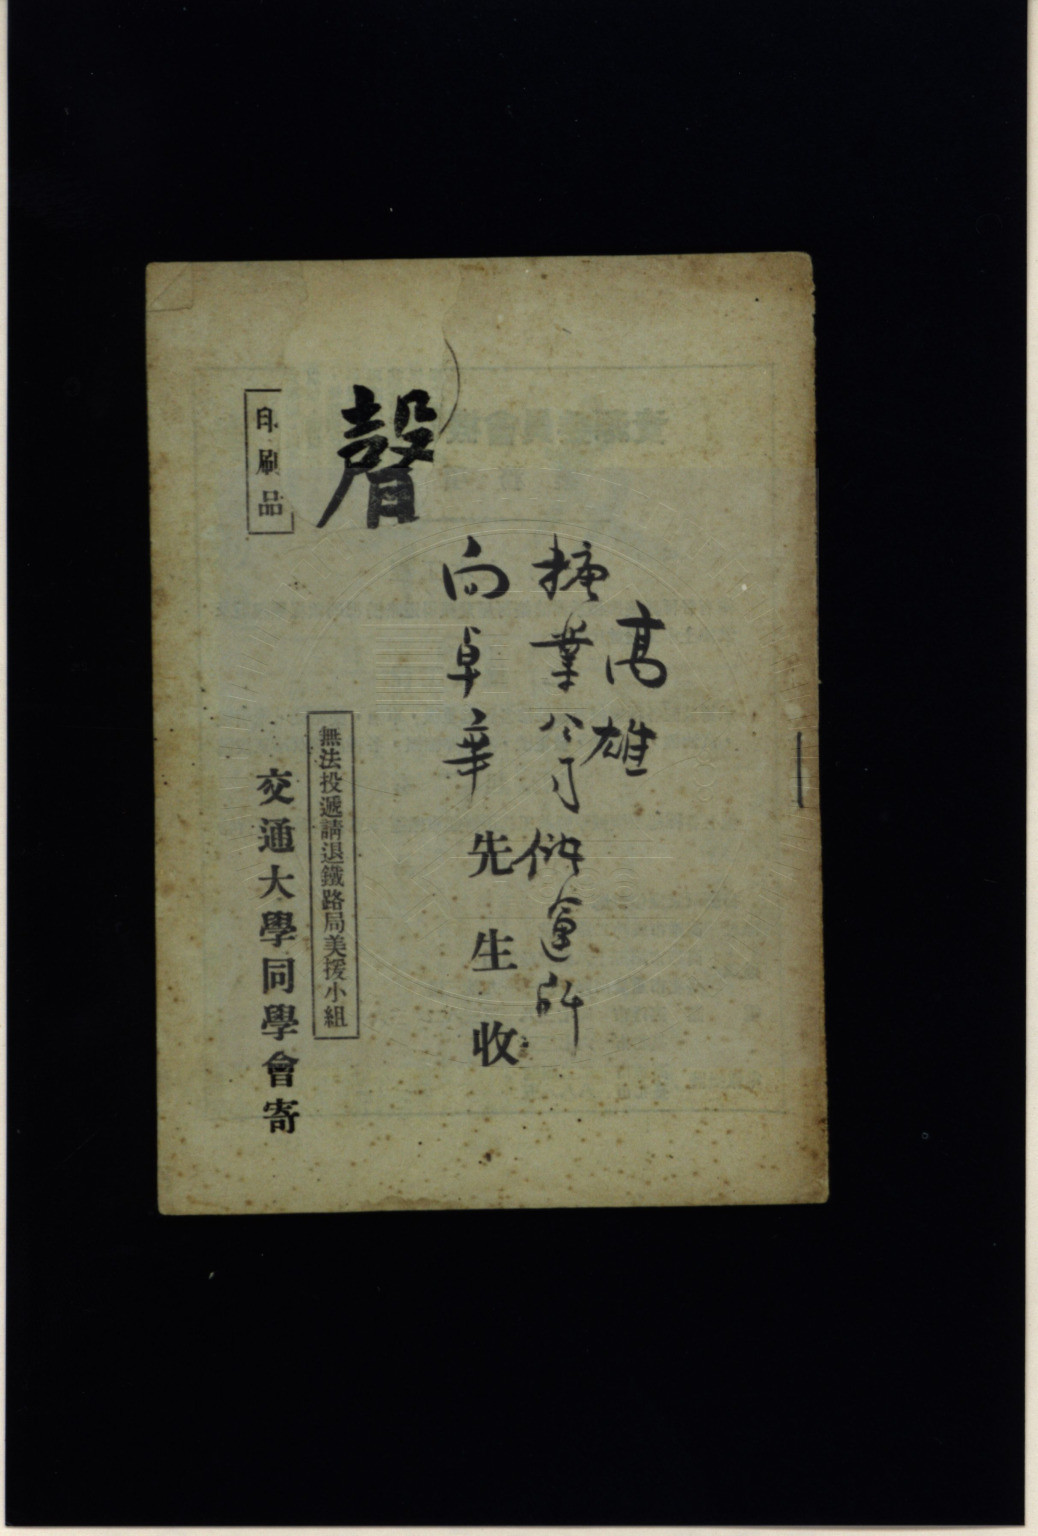 高雄
糖業公司儲運所
向卓華先生收
聲
無法投遞請退鐵路局美援小組
印刷品
交通大學同學會寄